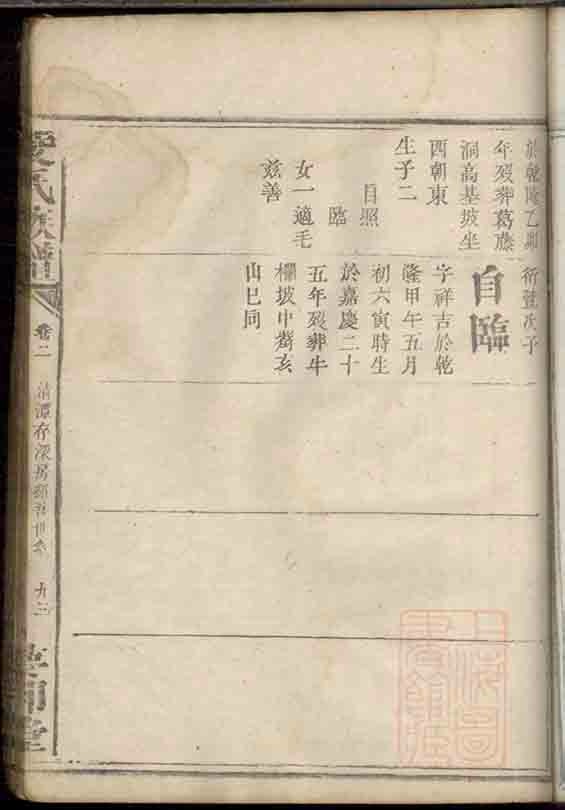 於乾隆乙卯
年歿葬葛藤
洞高基坡坐
酉朝東
生子二
自照
臨
女一適毛
兹善
衍 次子
自臨
字祥吉於乾
隆甲午五月
初六寅時生
於嘉慶二十
五年歿葬牛
欄坡中 亥
山巳同
氏族譜
卷二
清潭存深房 世系
九三
堂
上海圖
書館藏